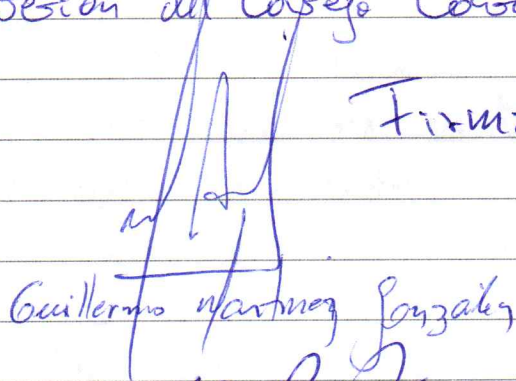 sesión del Consejo Cons
Firm
Guillermo Martínez González